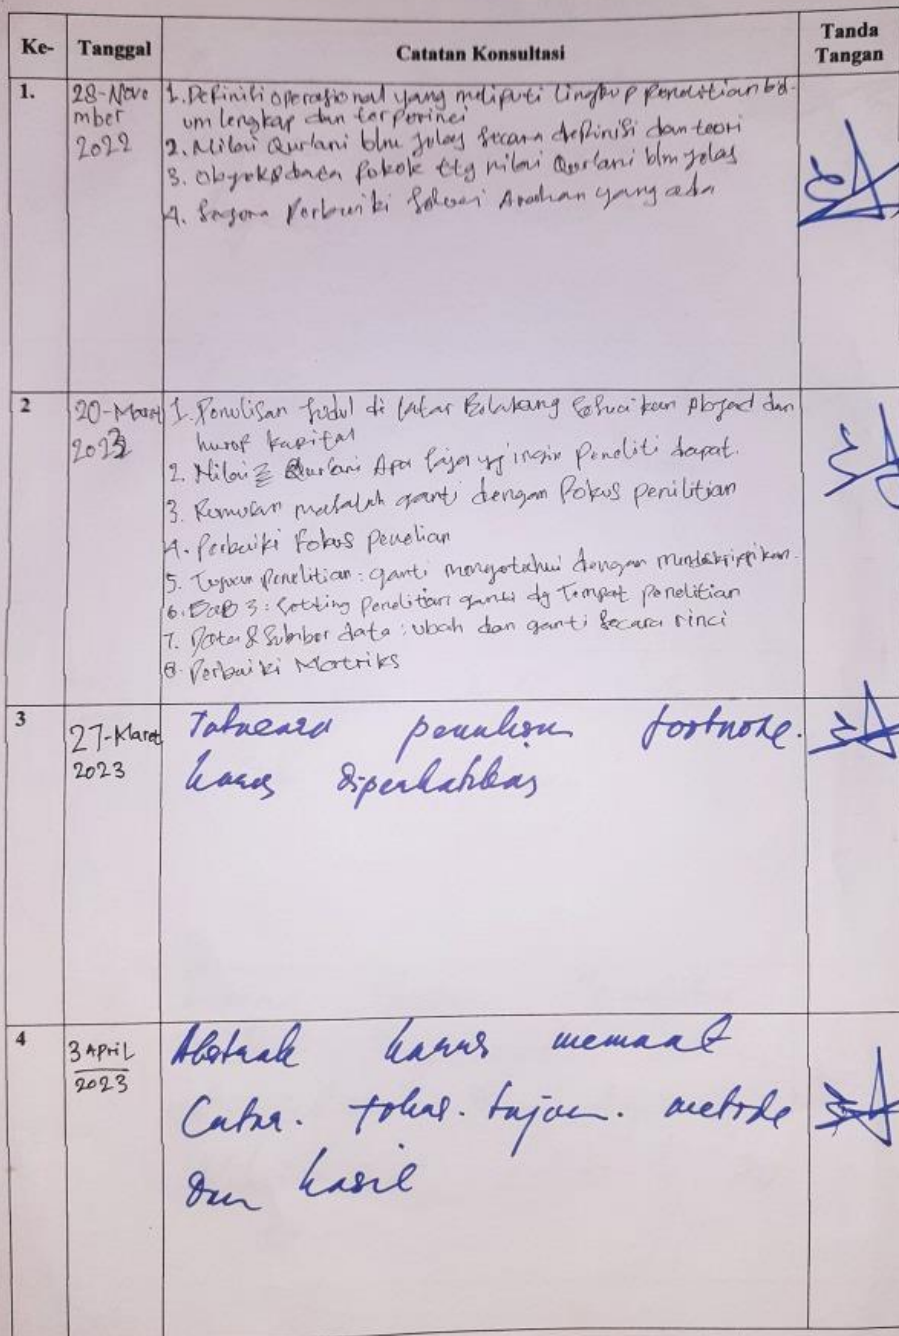 Ke- Tanggal Catatan Konsultasi Tanda Tangan
1. 28-Nove
mber
2022
1. Definisi operasional yang meliputi lingkup penelitian bel-
um lengkap dan terperinci
2. Nilai Qur'ani blm jelas secara definisi dan teori
3. Obyek & data pokok ttg nilai Qur'ani blm jelas
4. Segera Perbaiki sesuai Arahan yang ada
2 20-Maret
2023
1. Penulisan judul di latar Belakang sesuaikan Abjad dan
huruf kapital
2. Nilai2 Qur'ani Apa saja yg ingin Peneliti dapat.
3. Rumusan masalah ganti dengan Fokus penilitian
4. Perbaiki Fokus penelian
5. Tujuan Penelitian: ganti mengetahui dengan mendeskripsikan.
6. BaB 3: Setting Penelitian ganti dg Tempat penelitian
7. Data & Sumber data: ubah dan ganti secara rinci
8. Perbaiki Matriks
3 27-Maret
2023
Tatacara penulisan footnote.
harus diperhatikan
4 3 APRiL
2023
Abstrak harus memuat
fokus. tujuan. metode
dan hasil